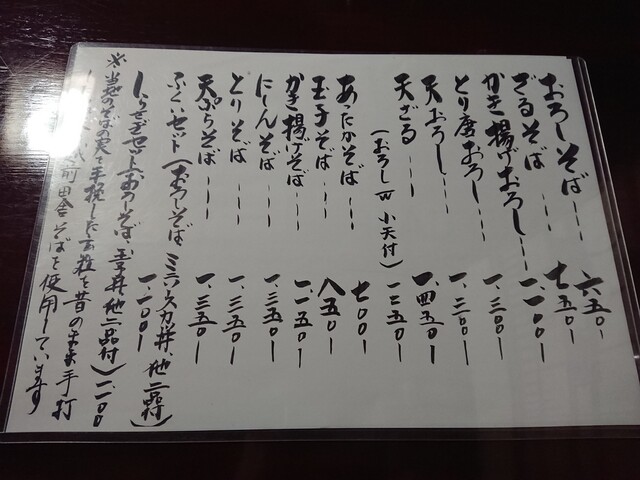 おろしそば --- 六五〇-
ざるそば --- 七五〇-
かき揚げおろし --- 一、一〇〇-
とり唐おろし --- 一、三〇〇-
天おろし --- 一、三〇〇-
天ざる --- 一、四五〇-
(おろしW小天付) 一二五〇-
あたかそば --- 七〇〇-
玉子そば --- 八五〇-
かき揚げそば --- 一、一五〇-
にしんそば --- 一、三五〇-
とりそば --- 一、三五〇-
天ぷらそば --- 一、三五〇-
ふくいセット(おろしそば カツ丼、他一品付) 一、一〇〇-
しらさぎセット(おろしそば、玉子丼、他一品付) 一、一〇〇
※当地のそばの実を手挽した玄粒を昔のまま手打
前田舎そばを使用しています